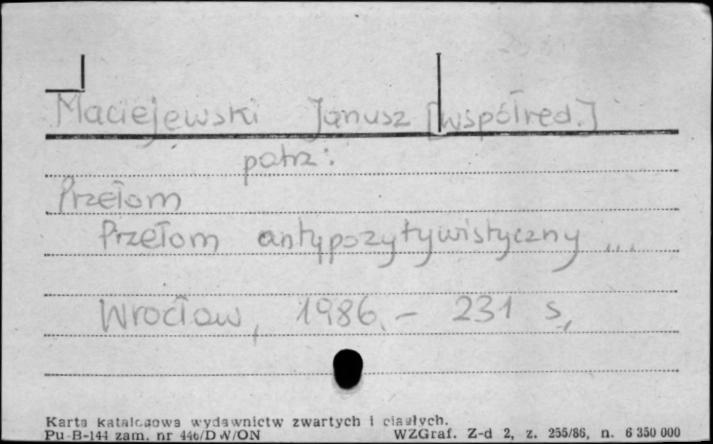 Maciejewski Janusz [współred.]
patrz:
Przełom
Przełom antypozytywistyczny ...
Wrocław, 1986. - 231 s,
Karta katalogowa wydawnictw zwartych i ciągłych.
Pu-B-144 zam. nr 446/DW/ON WZGraf. Z-d 2, z. 255/86, n. 6 350 000